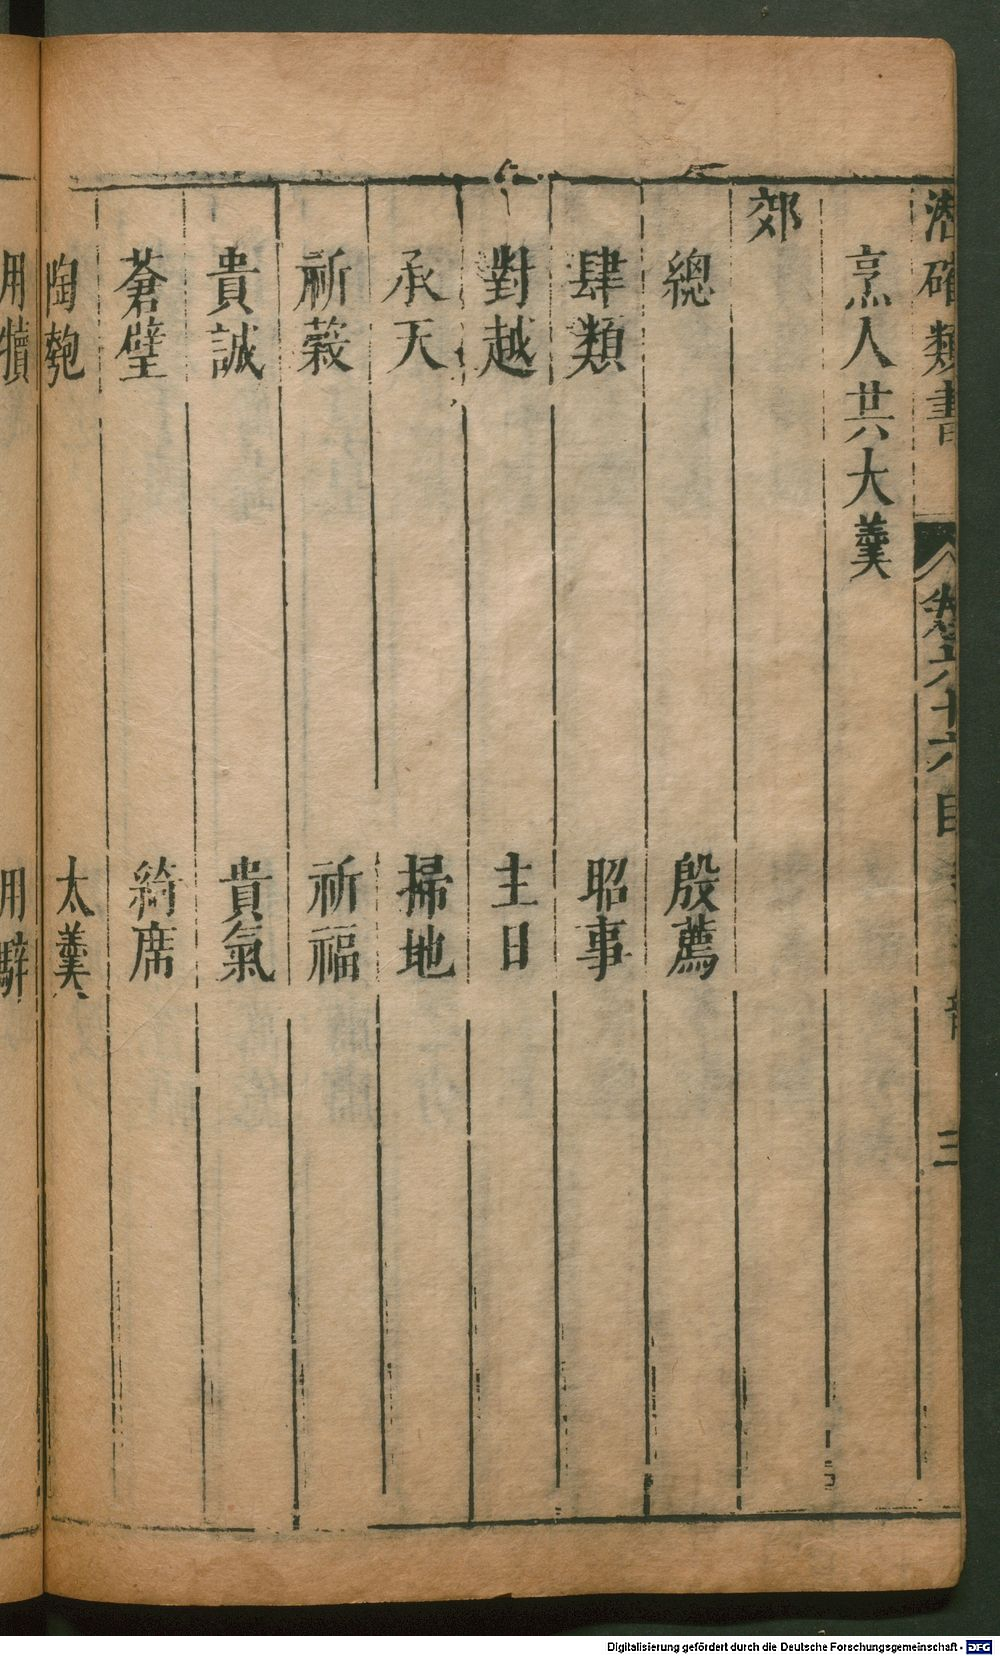 潛確類書 卷六十六 目 三
烹人共大羹
郊
總 殷薦
肆類 昭事
對越 主日
承天 掃地
祈穀 祈福
貴誠 貴氣
蒼璧 綺席
陶匏 太羹
用犢 用騂
Digitalisierung gefördert durch die Deutsche Forschungsgemeinschaft - DFG